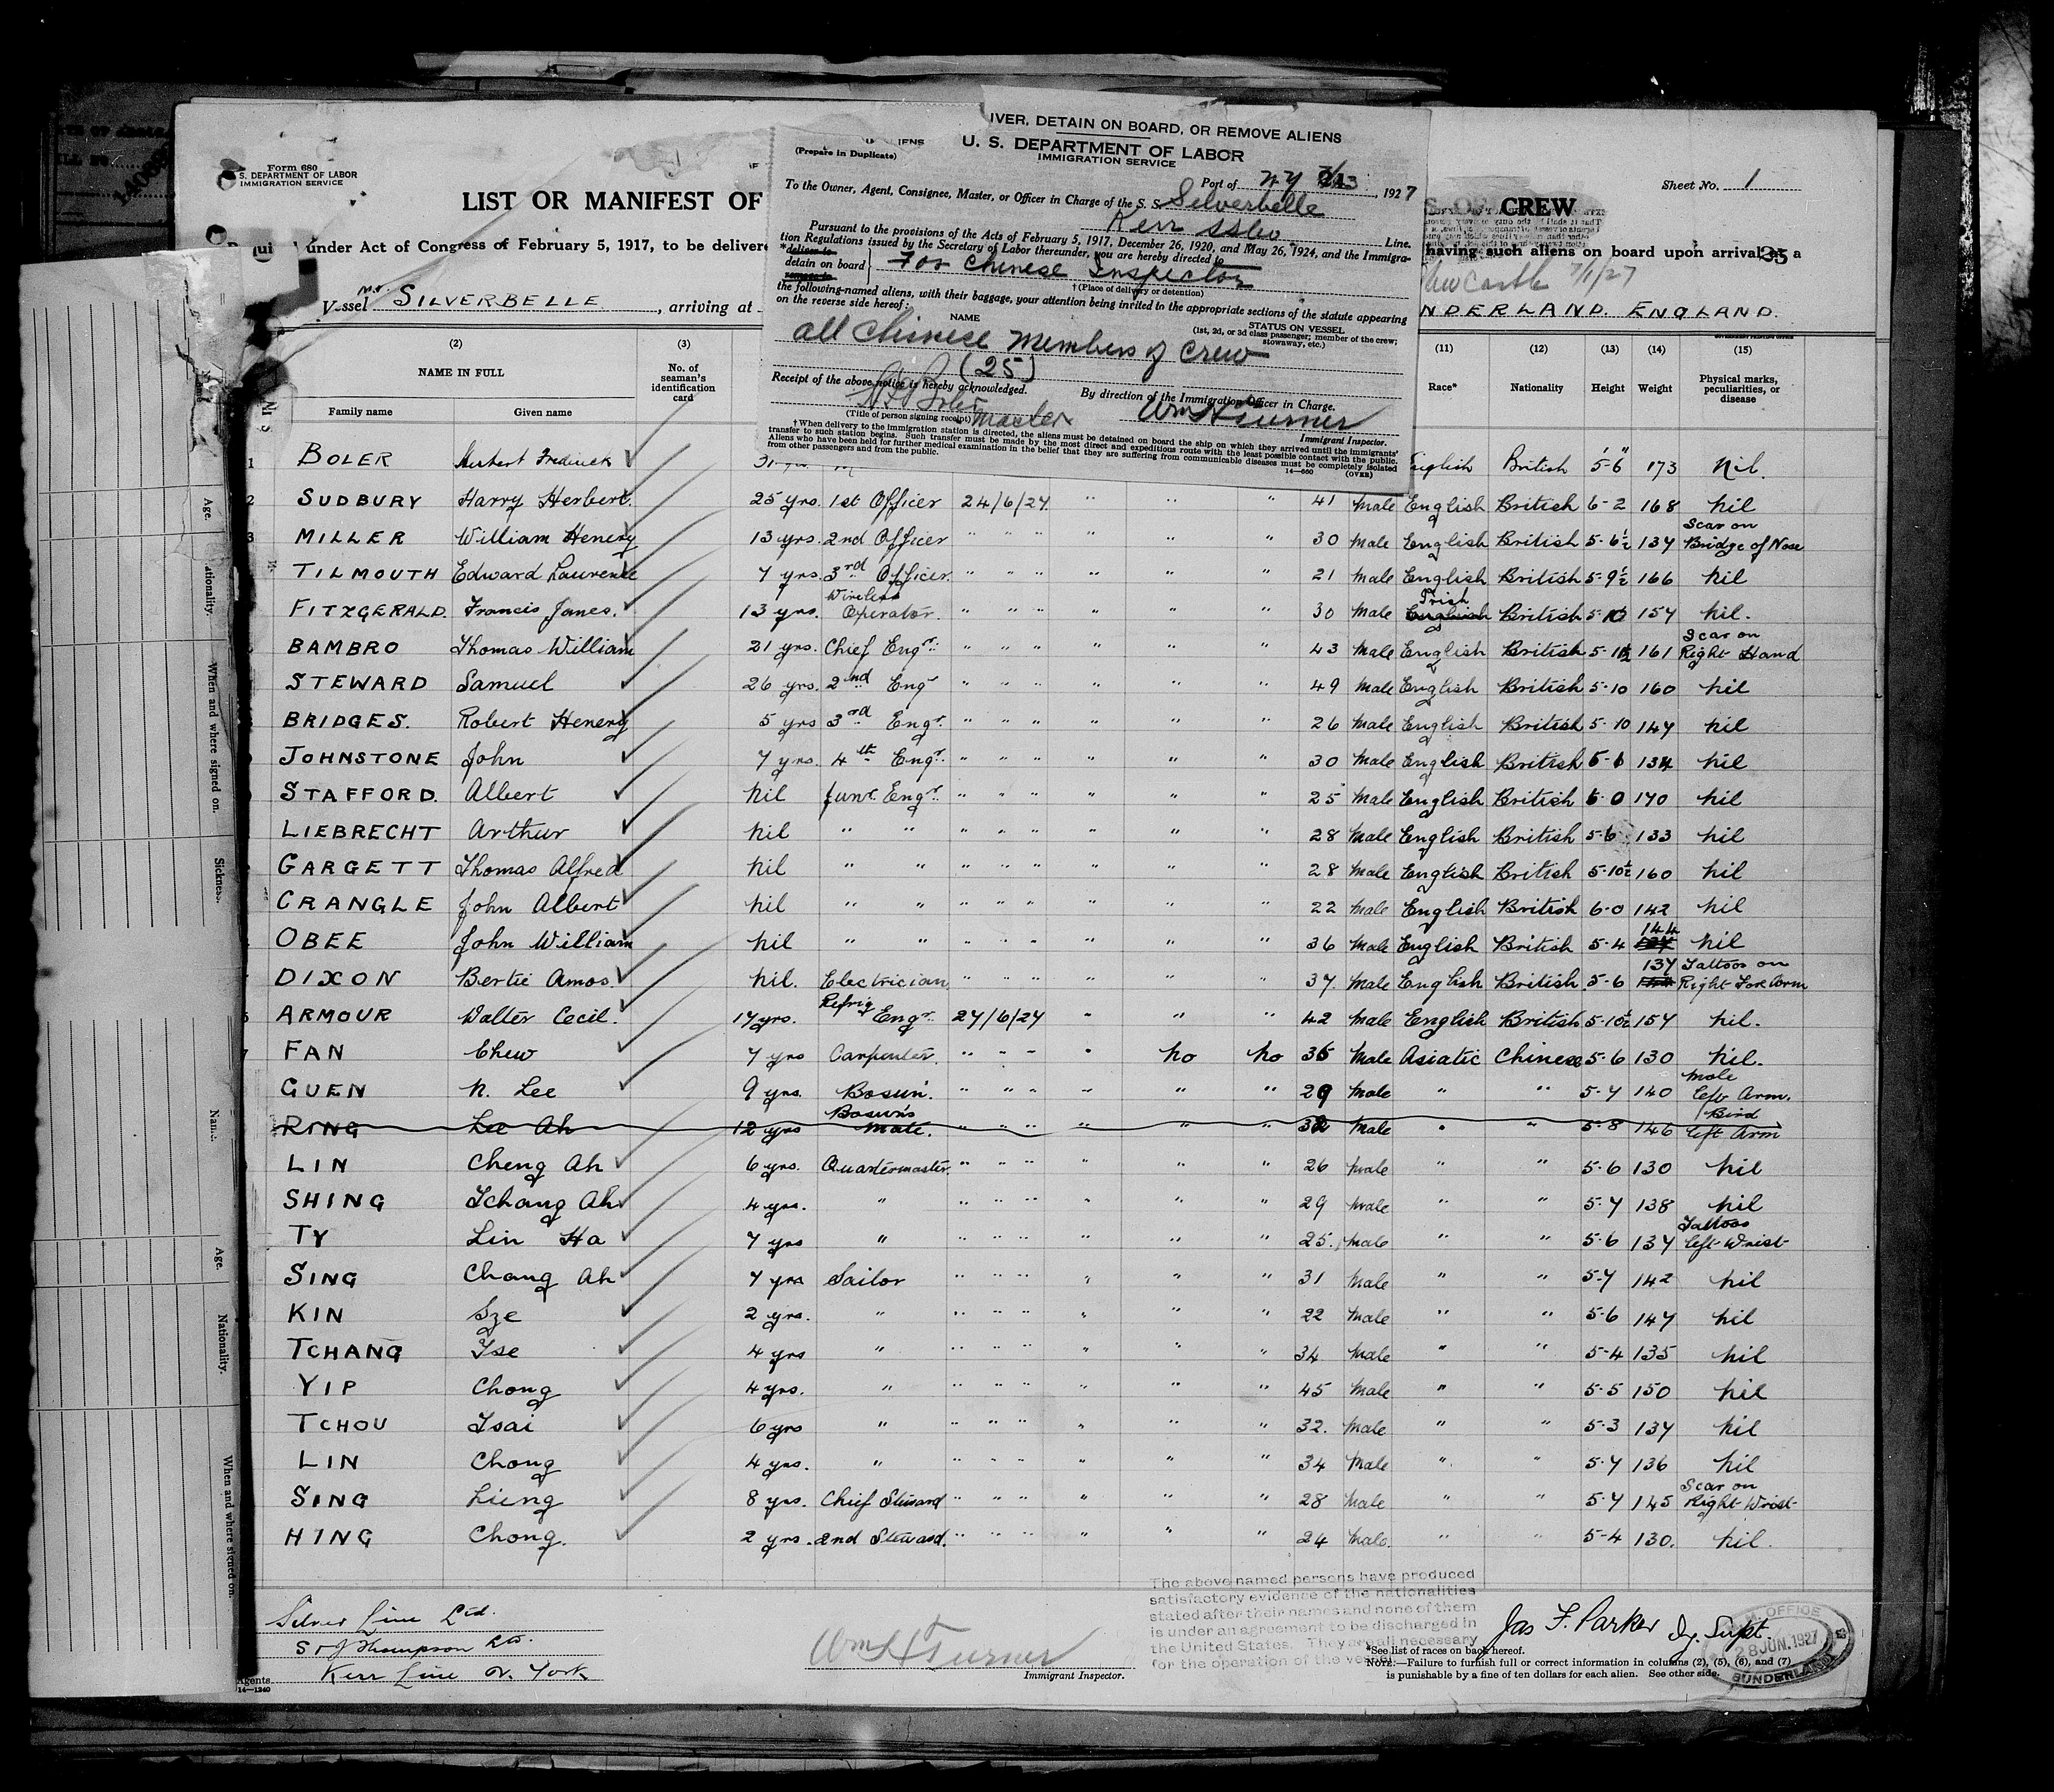 Form 680
S. DEPARTMENT OF LABOR
IMMIGRATION SERVICE
LIST OR MANIFEST OF
CREW
Sheet No. 1
under Act of Congress of February 5, 1917, to be delivere
having such aliens on board upon arrival at a
Vessel M.S. SILVERBELLE, arriving at
NewCastle 7/1/27
NDERLAND. ENGLAND.
IVER, DETAIN ON BOARD, OR REMOVE ALIENS
(Prepare in Duplicate)
U. S. DEPARTMENT OF LABOR
IMMIGRATION SERVICE
Port of NY 1927
To the Owner, Agent, Consignee, Master, or Officer in Charge of the S. S. Silverbelle
Kerr SSCo Line.
Pursuant to the provisions of the Acts of February 5, 1917, December 26, 1920, and May 26, 1924, and the Immigra-
tion Regulations issued by the Secretary of Labor thereunder, you are hereby directed to
*deliver to
detain on board
remove to
For Chinese Inspector
†(Place of delivery or detention)
the following-named aliens, with their baggage, your attention being invited to the appropriate sections of the statute appearing
on the reverse side hereof:
NAME
STATUS ON VESSEL
(1st, 2d, or 3d class passenger; member of the crew;
stowaway, etc.)
All Chinese Members of Crew
(25)
Receipt of the above notice is hereby acknowledged.
By direction of the Immigration Officer in Charge.
(Title of person signing receipt) Master
Wm H Turner
Immigrant Inspector.
†When delivery to the immigration station is directed, the aliens must be detained on board the ship on which they arrived until the immigrants'
transfer to such station begins. Such transfer must be made by the most direct and expeditious route with the least possible contact with the public.
Aliens who have been held for further medical examination in the belief that they are suffering from communicable diseases must be completely isolated
from other passengers and from the public.
14—660 (OVER)
(2) (3) (11) (12) (13) (14) (15)
NAME IN FULL
Family name Given name
No. of seaman's identification card
Race* Nationality Height Weight Physical marks, peculiarities, or disease
1 BOLER Herbert Frederick English British 5-6 173 Nil.
2 SUDBURY Harry Herbert. 25 yrs. 1st Officer 24/6/27 " " " 41 Male English British 6-2 168 nil
3 MILLER William Henery 13 yrs. 2nd Officer " " " " " " 30 Male English British 5-6½ 137 Scar on Bridge of Nose
TILMOUTH Edward Laurence 7 yrs. 3rd Officer. " " " " " " 21 Male English British 5-9½ 166 nil
FITZGERALD. Francis James. 13 yrs. Wireless Operator. " " " " " " 30 Male Irish English British 5-10 157 nil.
BAMBRO Thomas William 21 yrs. Chief Engr. " " " " " " 43 Male English British 5-10½ 161 Scar on Right Hand
STEWARD Samuel 26 yrs. 2nd Engr " " " " " " 49 Male English British 5-10 160 nil
BRIDGES. Robert Henery 5 yrs 3rd Engr. " " " " " " 26 Male English British 5-10 147 nil
JOHNSTONE John 7 yrs. 4th Engr. " " " " " " 30 Male English British 134 nil
STAFFORD. Albert nil Junr. Engr. " " " " " " 25 Male English British 6-0 170 nil
LIEBRECHT Arthur nil " " " " " " " " 28 Male English British 5-6 133 nil
GARGETT Thomas Alfred nil " " " " " " " " 28 Male English British 5-10½ 160 nil
CRANGLE John Albert nil " " " " " " " " 22 Male English British 6-0 142 nil
OBEE John William nil " " " " " " " " 36 Male English British 5-4 144 nil
DIXON Bertie Amos. nil. Electrician " " " " " " 37. Male English British 5-6 137 Tattoos on Right Fore Arm
ARMOUR Walter Cecil. 17 yrs. Refrig Engr. 27/6/27 " " " 42 Male English British 5-10½ 157 nil.
FAN Chew 7 yrs Carpenter. " " " " no no 35 Male Asiatic Chinese 5-6 130 nil.
GUEN N. Lee 9 yrs. Bosun. " " " " " " 29 Male " " 5-7 140 Mole left Arm.
RING Lee Ah 12 yrs Bosun's Mate. " " " " " " 32 Male " " 5-8 146 Bird left Arm
LIN Cheng Ah 6 yrs. Quartermaster. " " " " " " 26 Male " " 5-6 130 nil
SHING Tchang Ah 4 yrs. " " " " " " " 29 Male " " 5-7 138 nil
TY Lin Ha 7 yrs " " " " " " " 25. Male " " 5-6 137 Tattoos left Wrist
SING Chang Ah 7 yrs Sailor " " " " " " 31 Male " " 5-7 142 nil
KIN Sze 2 yrs. " " " " " " " 22 Male " " 5-6 147 nil
TCHANG Tse 4 yrs " " " " " " " 34 Male " " 5-4 135 nil
YIP Chong 4 yrs. " " " " " " " 45 Male " " 5-5 150 nil
TCHOU Tsai 6 yrs " " " " " " " 32. Male " " 5-3 137 nil
LIN Chong 4 yrs. " " " " " " " 34 Male " " 5-7 136 nil
SING Lieng 8 yrs. Chief Steward " " " " " " 28 Male " " 5-7 145 Scar on Right Wrist
HING Chong. 2 yrs. 2nd Steward. " " " " " " 24 Male. " " 5-4 130. nil.
Silver Line Ltd.
S & J Thompson Ltd.
Kerr Line N. York
Agents
14—1240
Wm H Turner
Immigrant Inspector.
The above named persons have produced
satisfactory evidence of the nationalities
stated after their names and none of them
is under an agreement to be discharged in
the United States. They are all necessary
for the operation of the vessel
Jas F. Parker Dy. Supt.
28 JUN. 1927
SUNDERLAND
*See list of races on back hereof.
NOTE.—Failure to furnish full or correct information in columns (2), (5), (6), and (7)
is punishable by a fine of ten dollars for each alien. See other side.
Age.
Nationality.
When and where signed on.
Sickness.
Name.
Age.
Nationality.
When and where signed on.